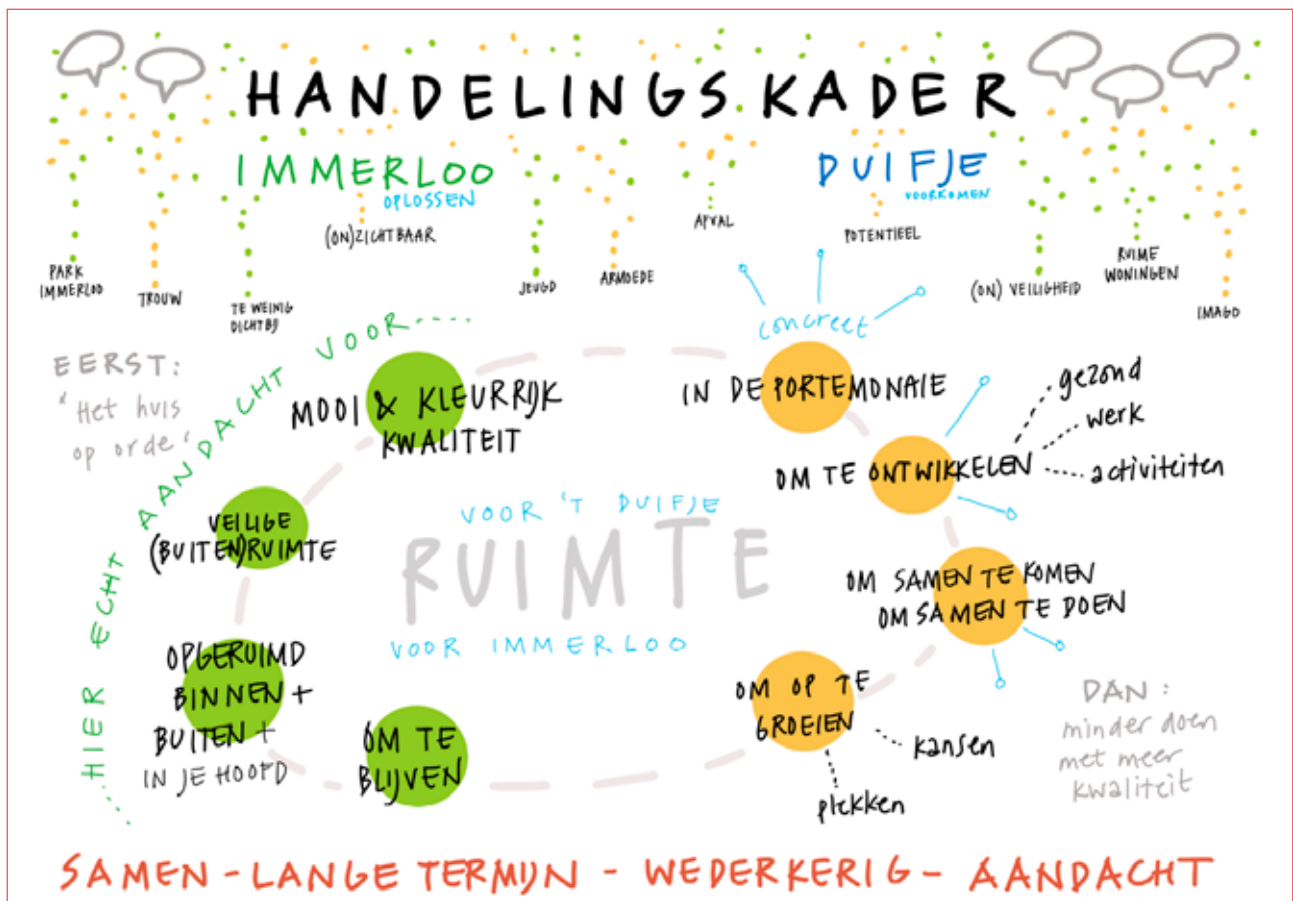 HANDELINGSKADER
IMMERLOO
OPLOSSEN
DUIFJE
VOORKOMEN
PARK
IMMERLOO
TROUW
TE WEINIG
DICHTBIJ
(ON)ZICHTBAAR
JEUGD
ARMOEDE
AFVAL
POTENTIEEL
(ON) VEILIGHEID
RUIME
WONINGEN
IMAGO
EERST:
'Het huis
op orde'
....HIER ECHT AANDACHT VOOR....
MOOI & KLEURRIJK
KWALITEIT
VEILIGE
(BUITEN)RUIMTE
OPGERUIMD
BINNEN +
BUITEN +
IN JE HOOFD
OM TE
BLIJVEN
VOOR 'T DUIFJE
RUIMTE
VOOR IMMERLOO
concreet
IN DE PORTEMONAIE
OM TE ONTWIKKELEN
gezond
werk
activiteiten
OM SAMEN TE KOMEN
OM SAMEN TE DOEN
OM OP TE
GROEIEN
kansen
plekken
DAN:
minder doen
met meer
kwaliteit
SAMEN - LANGE TERMIJN - WEDERKERIG - AANDACHT